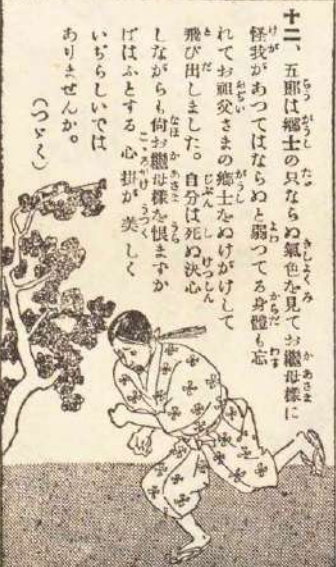 十二、五郎は郷士の只ならぬ氣色を見てお繼母樣に
怪我があつてはならぬと弱つてる身體も忘
れてお祖父さまの郷士をぬけがけして
飛び出しました。自分は死ぬ決心
しながらも尙お繼母樣を恨ますか
ばはふとする心掛が美しく
いぢらしいでは
ありませんか。
(つゞく)